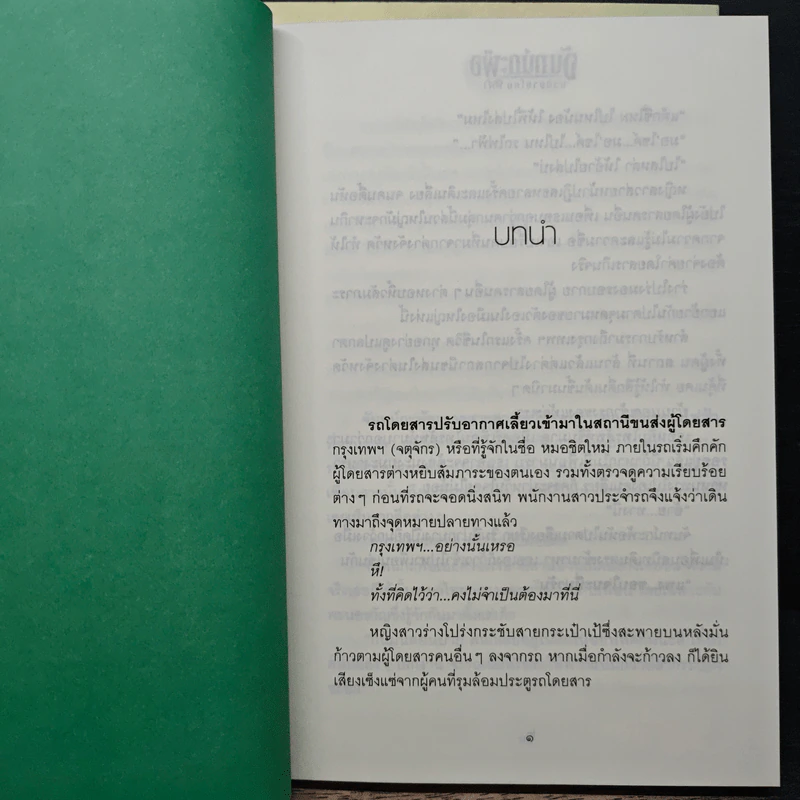 บทนำ
รถโดยสารปรับอากาศเลี้ยวเข้ามาในสถานีขนส่งผู้โดยสาร
กรุงเทพฯ (จตุจักร) หรือที่รู้จักในชื่อ หมอชิตใหม่ ภายในรถเริ่มคึกคัก
ผู้โดยสารต่างหยิบสัมภาระของตนเอง รวมทั้งตรวจดูความเรียบร้อย
ต่างๆ ก่อนที่รถจะจอดนิ่งสนิท พนักงานสาวประจำรถจึงแจ้งว่าเดิน
ทางมาถึงจุดหมายปลายทางแล้ว
กรุงเทพฯ...อย่างนั้นเหรอ
หึ!
ทั้งที่คิดไว้ว่า...คงไม่จำเป็นต้องมาที่นี่
หญิงสาวร่างโปร่งกระชับสายกระเป๋าเป้ซึ่งสะพายบนหลังมั่น
ก้าวตามผู้โดยสารคนอื่นๆ ลงจากรถ หากเมื่อกำลังจะก้าวลง ก็ได้ยิน
เสียงเซ็งแซ่จากผู้คนที่รุมล้อมประตูรถโดยสาร
๑